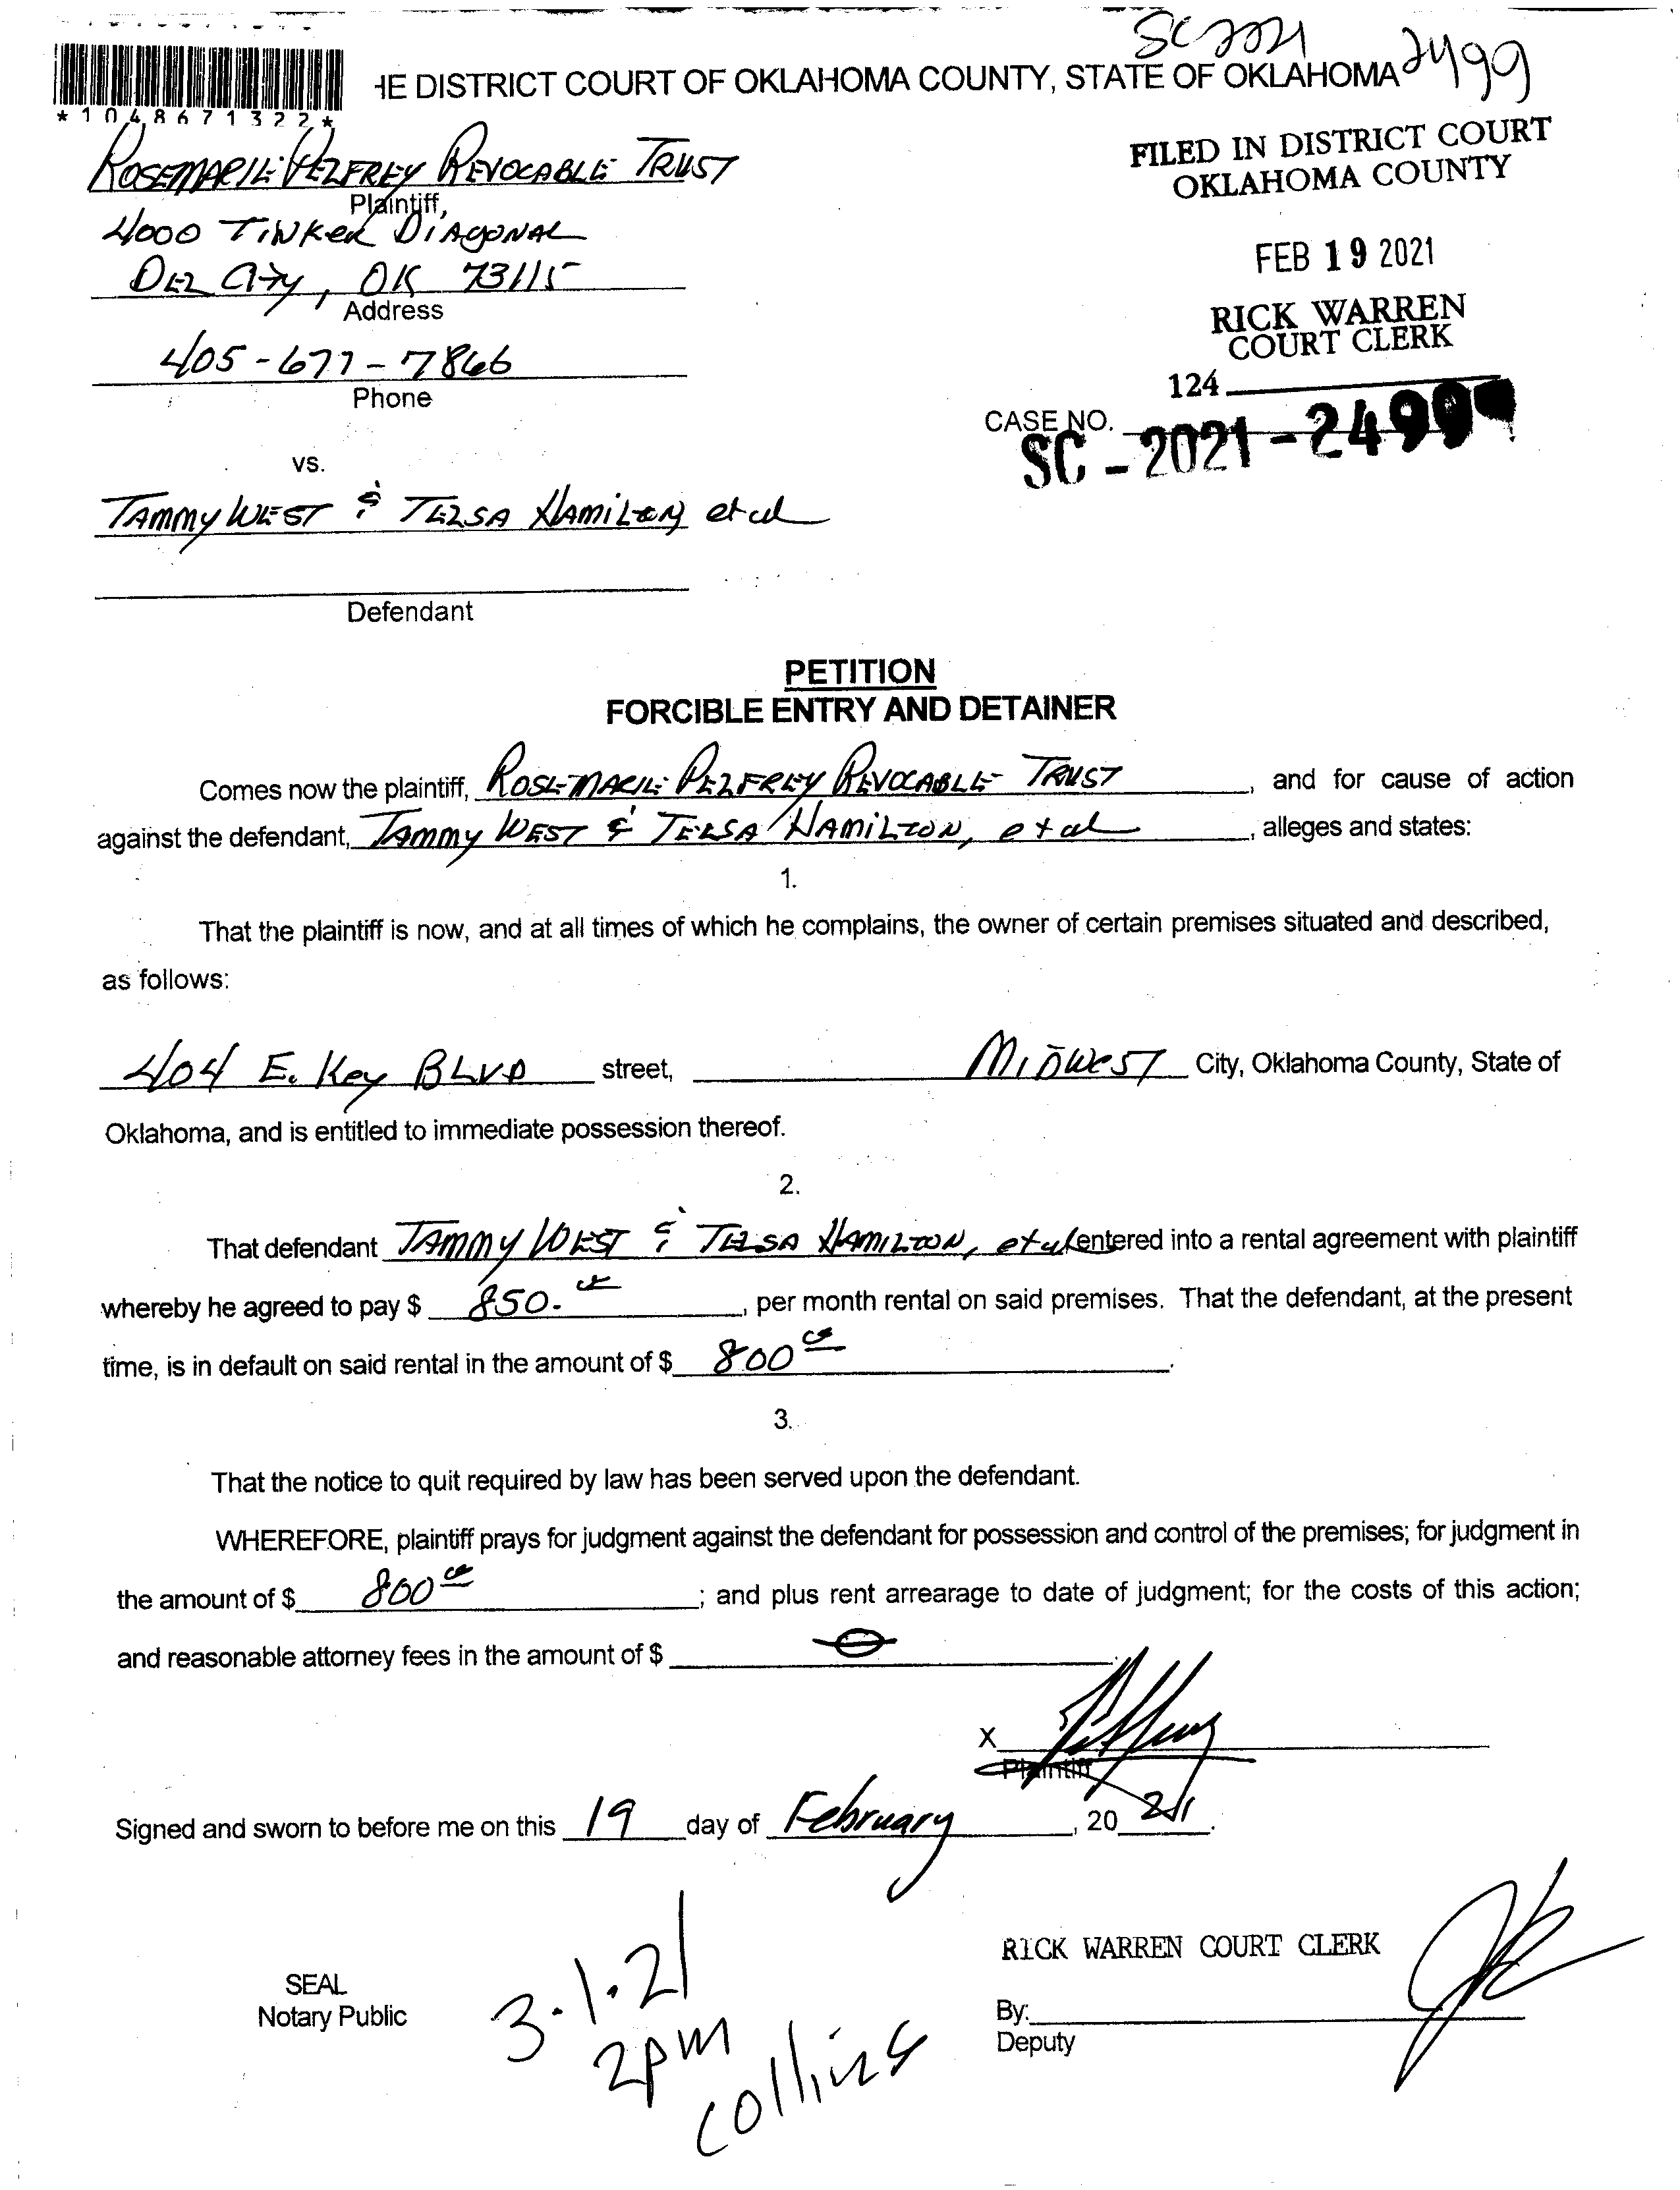 SC 2021 2499
HE DISTRICT COURT OF OKLAHOMA COUNTY, STATE OF OKLAHOMA
*1048671322*
FILED IN DISTRICT COURT
OKLAHOMA COUNTY
ROSEMARIE PELFREY REVOCABLE TRUST
Plaintiff,
4000 TINKER DIAGONAL
DEL City, OK 73115
Address
FEB 19 2021
RICK WARREN
COURT CLERK
405-677-7866
Phone
124
CASE NO.
SC - 2021 - 2499
vs.
TAMMY WEST & TELSA HAMILTON et al
Defendant
PETITION
FORCIBLE ENTRY AND DETAINER
Comes now the plaintiff, ROSEMARIE PELFREY REVOCABLE TRUST, and for cause of action
against the defendant, TAMMY WEST & TELSA HAMILTON, et al, alleges and states:
1.
That the plaintiff is now, and at all times of which he complains, the owner of certain premises situated and described,
as follows:
404 E. Key BLVD street, MIDWEST City, Oklahoma County, State of
Oklahoma, and is entitled to immediate possession thereof.
2.
That defendant TAMMY WEST & TELSA HAMILTON, et al entered into a rental agreement with plaintiff
whereby he agreed to pay $ 850.00, per month rental on said premises. That the defendant, at the present
time, is in default on said rental in the amount of $ 800 00.
3.
That the notice to quit required by law has been served upon the defendant.
WHEREFORE, plaintiff prays for judgment against the defendant for possession and control of the premises; for judgment in
the amount of $ 800 00; and plus rent arrearage to date of judgment; for the costs of this action;
and reasonable attorney fees in the amount of $ 0.
X
Plaintiff
Signed and sworn to before me on this 19 day of February, 20 21.
RICK WARREN COURT CLERK
SEAL
Notary Public
3.1.21
2pm
collins
By:
Deputy